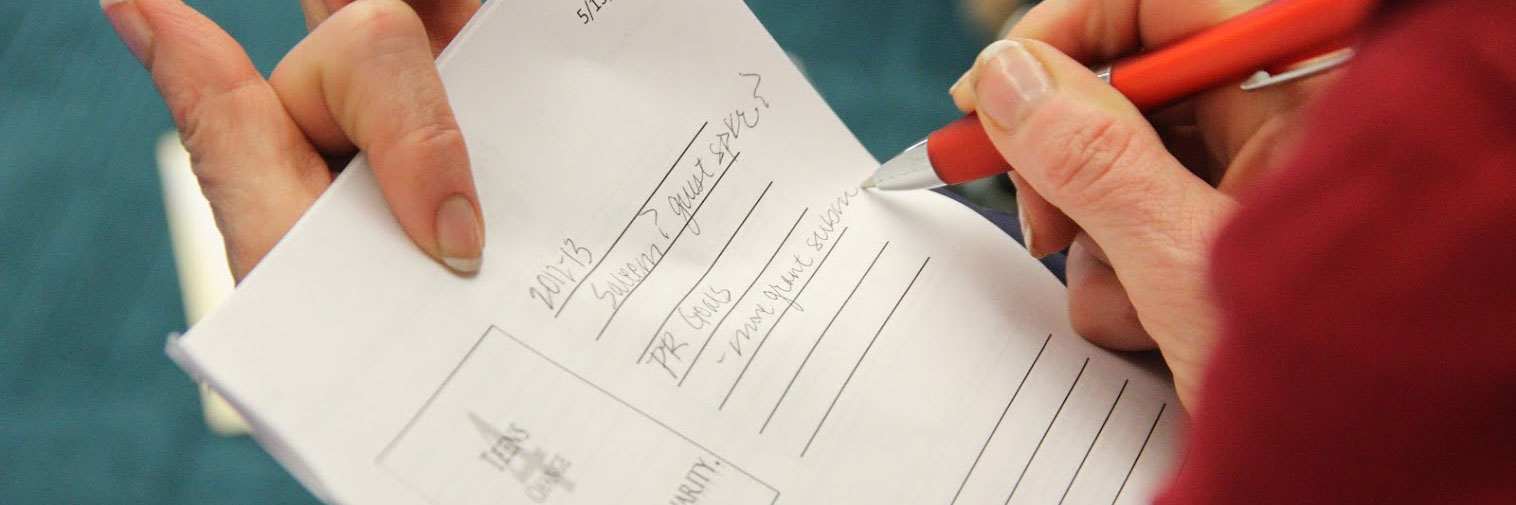 5/15
2012-13
Saleem? guest spkr?
PR Goals
- more grant subm
TEENS
CHANGE
CHARITY.